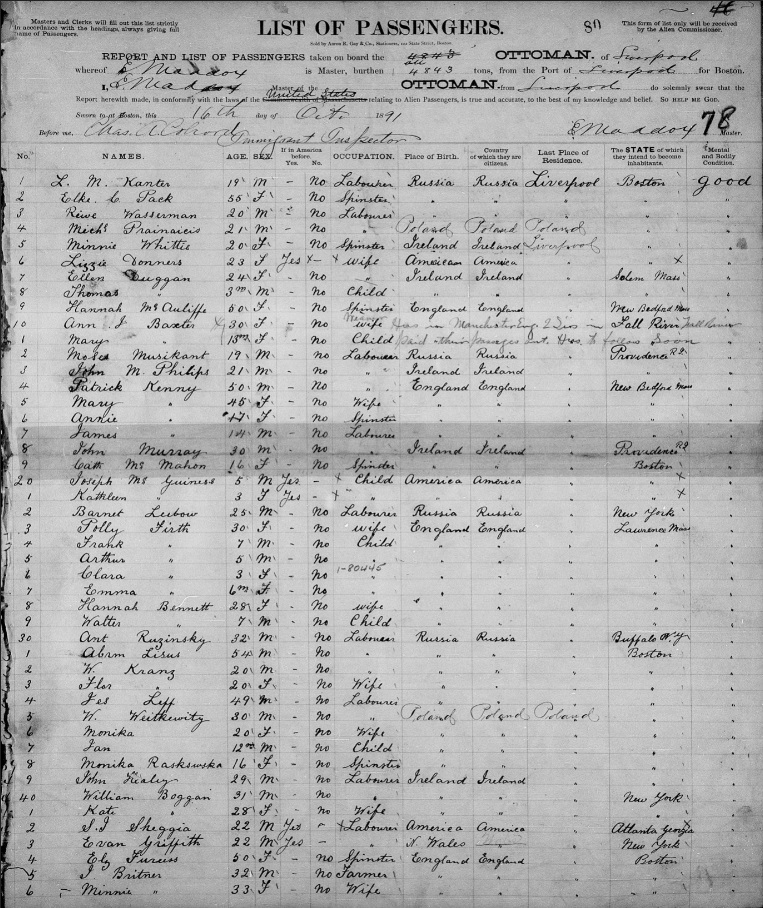 Masters and Clerks will fill out this list strictly
in accordance with the headings, always giving full
name of Passengers.
LIST OF PASSENGERS.
80
This form of list only will be received
by the Alien Commissioner.
REPORT AND LIST OF PASSENGERS taken on board the OTTOMAN. of Liverpool
whereof E Maddox is Master, burthen 4843 tons, from the Port of Liverpool for Boston.
I, E Maddox Master of the OTTOMAN. from Liverpool do solemnly swear that the
Report herewith made, in conformity with the laws of the United States relating to Alien Passengers, is true and accurate, to the best of my knowledge and belief. SO HELP ME GOD.
Sworn to at Boston, this 16th day of Oct. 1891
E Maddox Master. 78
Before me, Immigrant Inspector
No. NAMES. AGE. SEX. If in America before. Yes. No. OCCUPATION. Place of Birth. Country of which they are citizens. Last Place of Residence. The STATE of which they intend to become inhabitants. Mental and Bodily Condition.
1 L. M. Kanter 19 M – No Labourer Russia Russia Liverpool Boston good
2 Elke C Pack 55 F – No Spinster " " " " "
3 Reive Wasserman 20 M – No Labourer " " " " "
4 21 M – No " Poland Poland Poland " "
5 Minnie Whittle 20 F – No Spinster Ireland Ireland Liverpool " "
6 Lizzie Donners 23 F Yes – wife American America " " "
7 Ellen Duggan 24 F – No " Ireland Ireland " Salem Mass "
8 Thomas " 3m M – No Child " " " " "
9 Hannah McAuliffe 50 F – No Spinster England England " New Bedford Mass "
10 Ann J Baxter 30 F – No wife Has in Manchester Eng. in Fall River Fall River
1 Mary " F – No Child Paid their passages Has to follow soon
2 Moses Musikant 19 M – No Labourer Russia Russia " Providence R.I. "
3 John M. Philips 21 M – No " Ireland Ireland " " "
4 Patrick Kenny 50 M – No " England England " New Bedford Mass "
5 Mary " 45 F – No Wife " " " " "
6 Annie " 17 F – No Spinster " " " " "
7 James " 14 M – No Labourer " " " " "
8 John Murray 30 M – No " Ireland Ireland " Providence R.I. "
9 Cath McMahon 16 F – No Spinster " " " Boston "
20 Joseph McGuiness 5 M Yes – Child America America " " "
1 Kathleen " 3 F Yes – " " " " " "
2 Barnet Lubow 25 M – No Labourer Russia Russia " New York "
3 Polly Firth 30 F – No wife England England " Lawrence Mass "
4 Frank " 7 M – No Child " " " " "
5 Arthur " 5 M – No " " " " " "
6 Clara " 3 F – No " 1-80445 " " " " "
7 Emma " 6m F – No " " " " " "
8 Hannah Bennett 28 F – No wife " " " " "
9 Walter " 7 M – No Child " " " " "
30 Ant Ruzinsky 32 M – No Labourer Russia Russia " Buffalo N.Y "
1 Abrm Lisus 54 M – No " " " " Boston "
2 W. Kranz 20 M – No " " " " " "
3 Flor " 20 F – No Wife " " " " "
4 Jes Leff 49 M – No Labourer " " " " "
5 W. Weitkewitz 30 M – No " Poland Poland Poland " "
6 Monika " 20 F – No Wife " " " " "
7 Jan " 12m M – No Child " " " " "
8 Monika Raskswska 16 F – No Spinster " " " " "
9 John Kealey 29 M – No Labourer Ireland Ireland " " "
40 William Boggan 31 M – No " " " " New York "
1 Kate " 28 F – No Wife " " " " "
2 S. J Skeggia 22 M Yes – Labourer America America " Atlanta Georgia "
3 Evan Griffith 22 M Yes – " N Wales " New York "
4 Eliz Furciss 50 F – No Spinster England England " Boston "
5 J Britner 32 M – No Farmer " " " " "
6 Minnie " 33 F – No Wife " " " " "